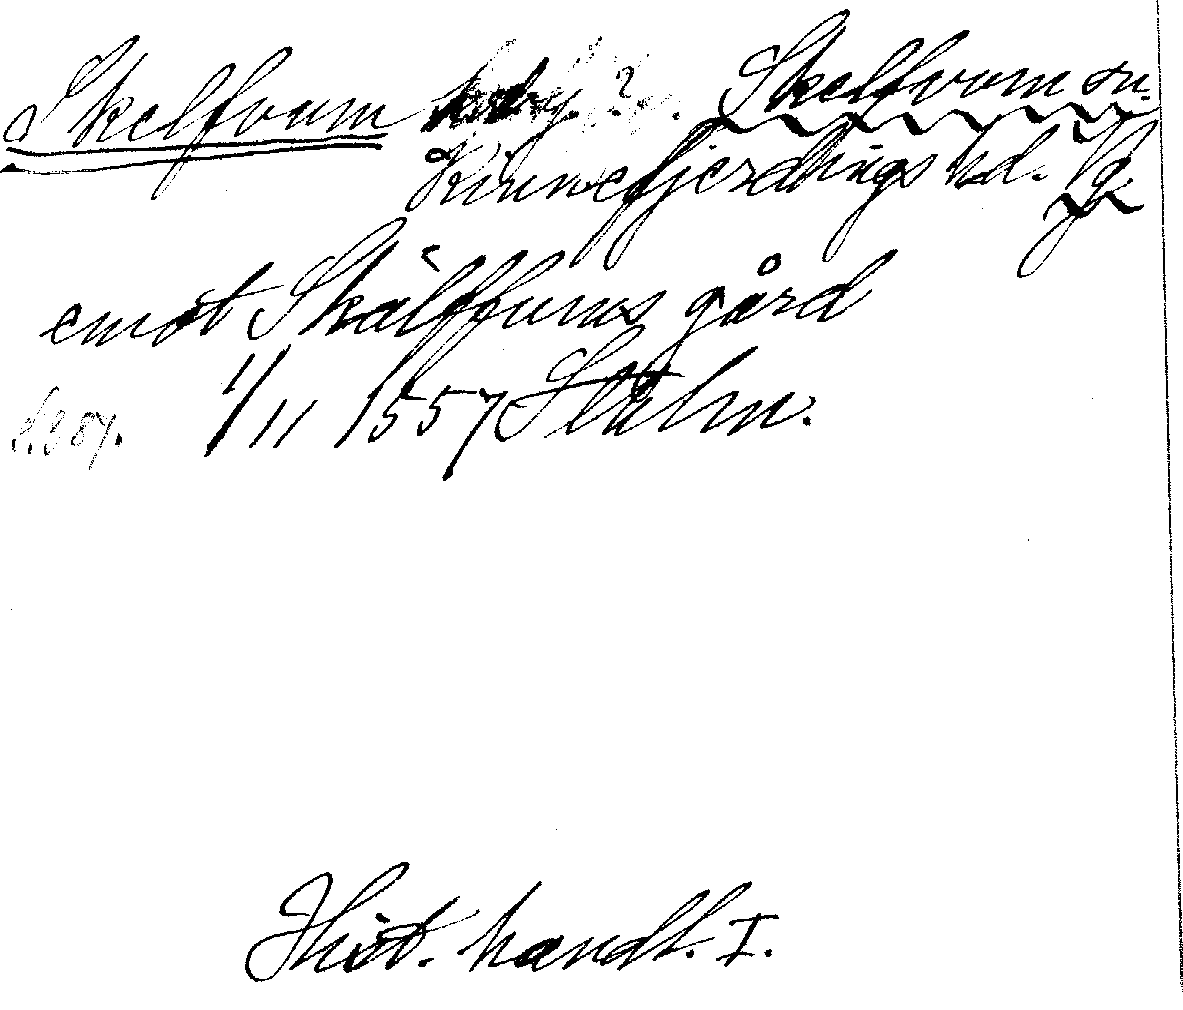 Skelfvum kyrkby? Skelfvum sn.
Kinnefjerdings hd. Vg.
emot Skälffvums gård
1/11 1557 Sthlm.
Hist. handl. I.